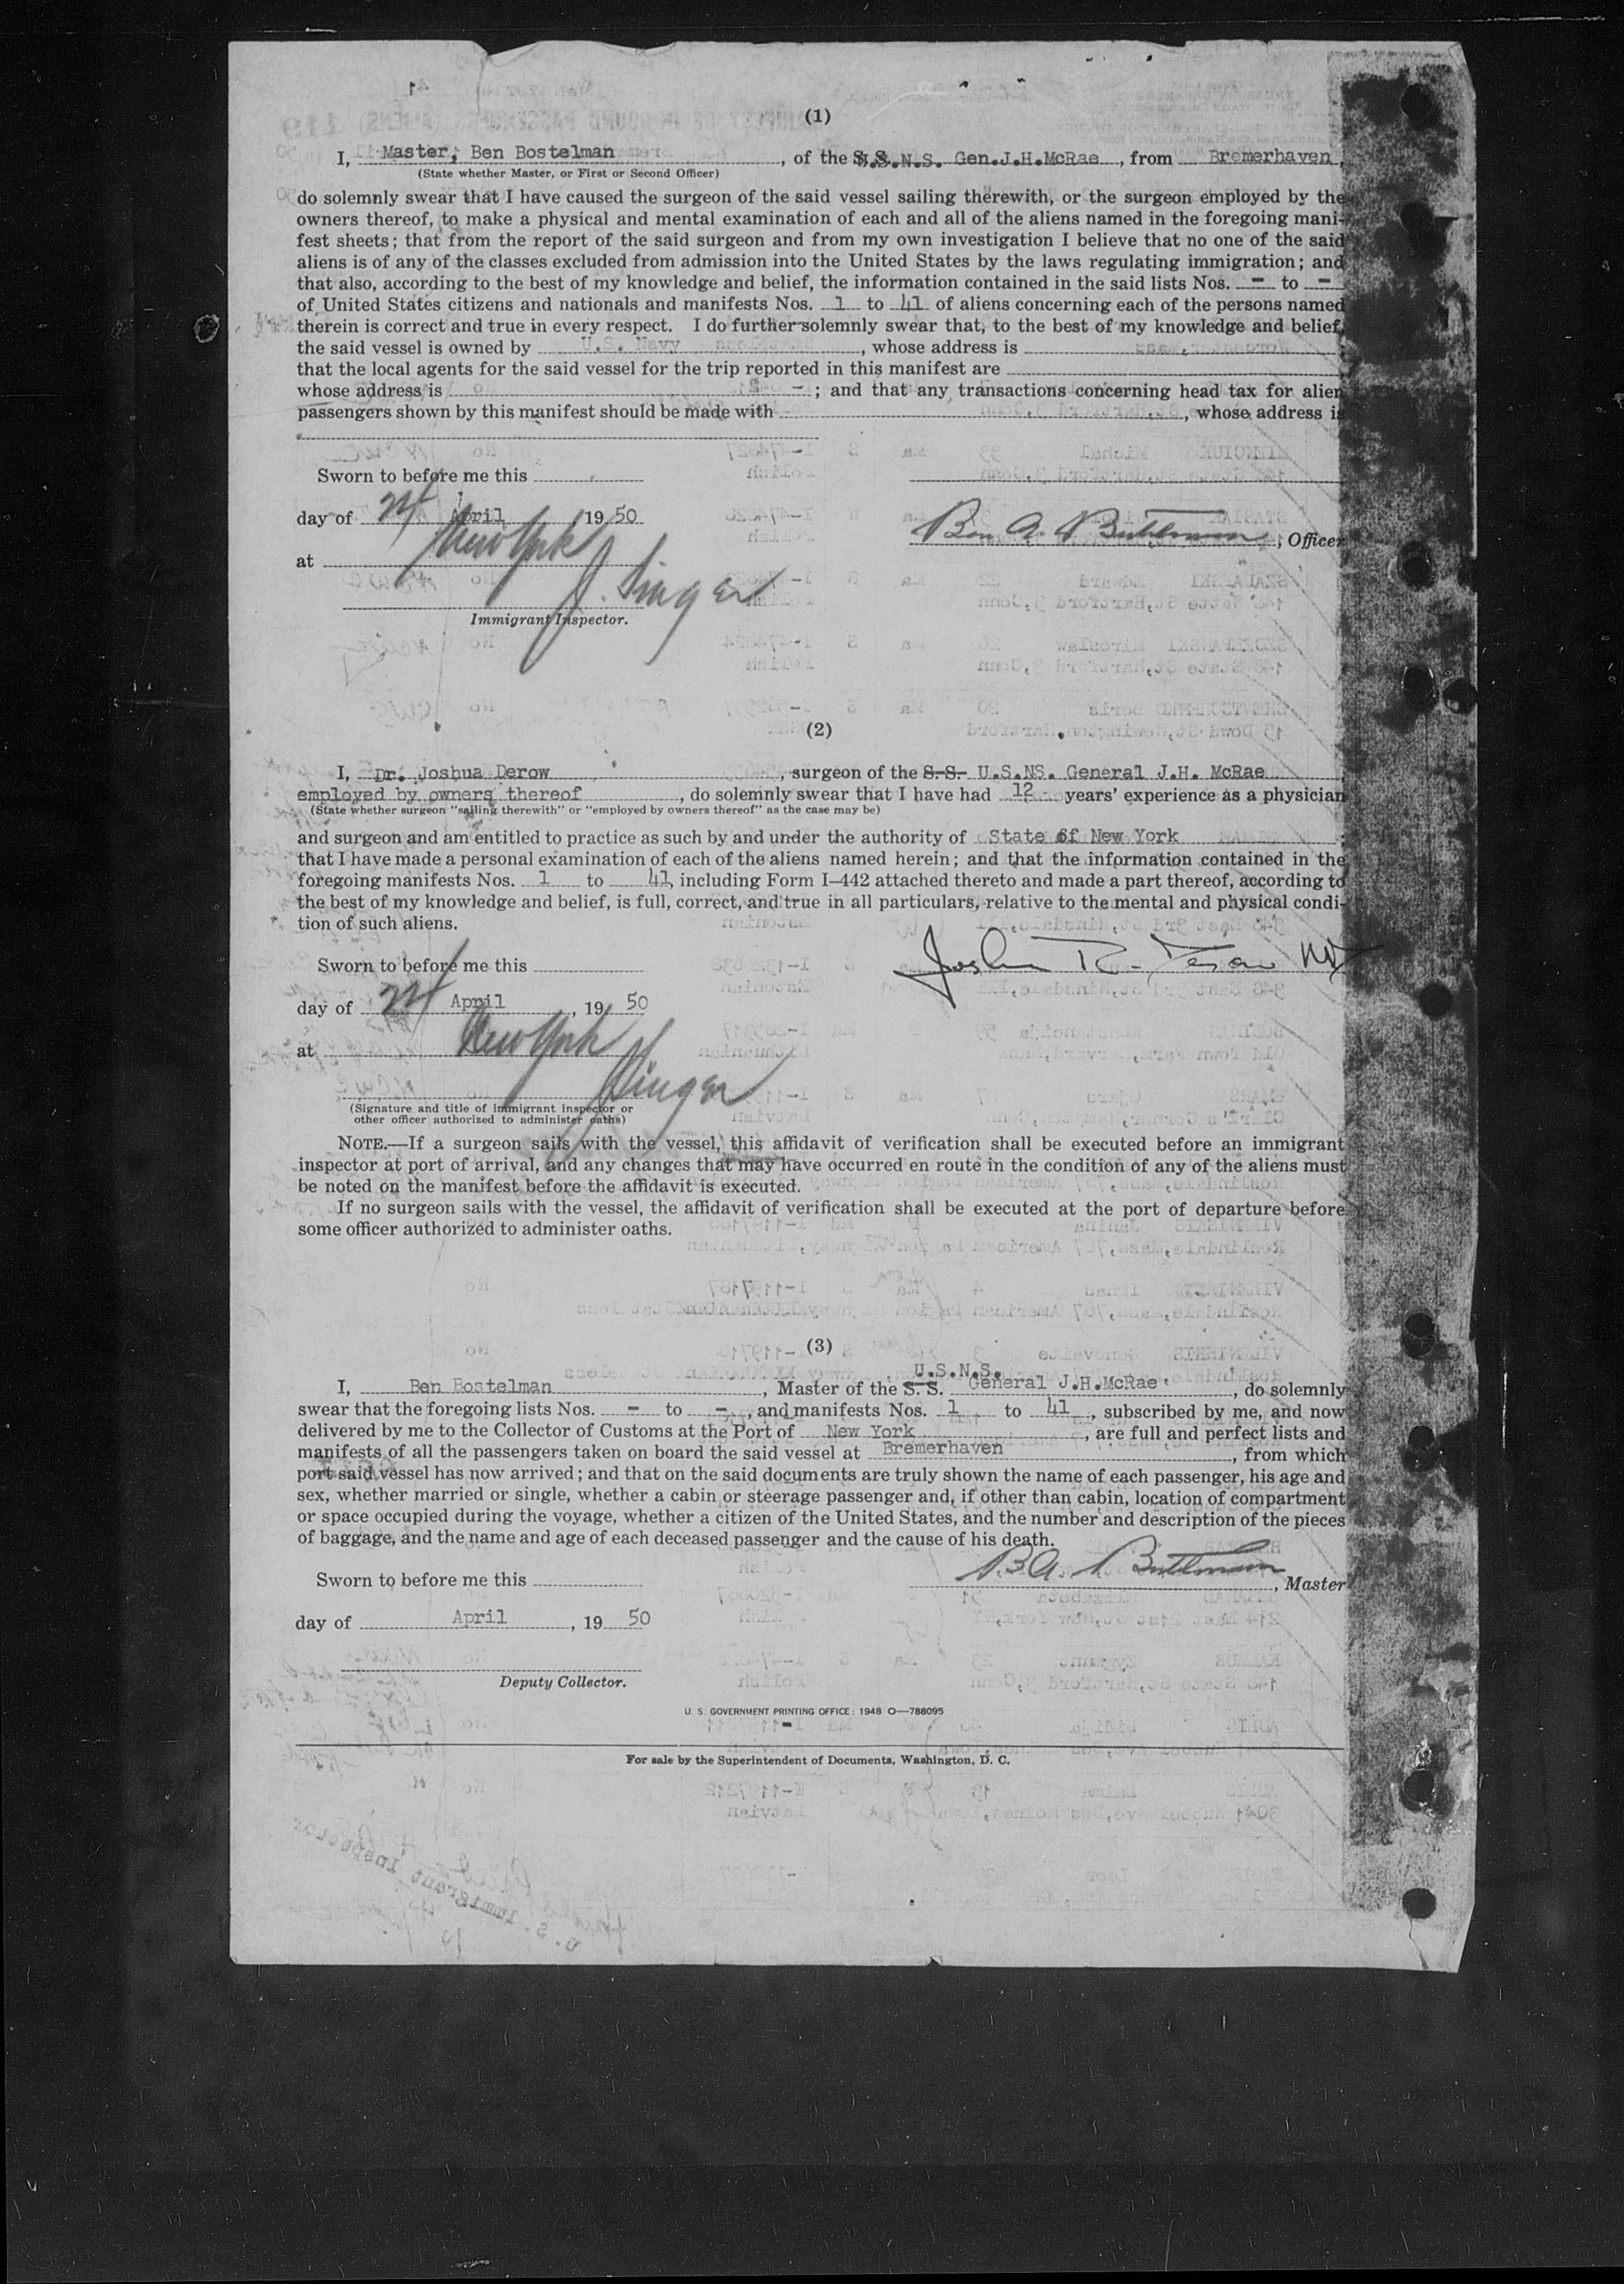 (1)
I, Master, Ben Bostelman, of the S. S. U.S.N.S. Gen.J.H.McRae, from Bremerhaven,
(State whether Master, or First or Second Officer)
do solemnly swear that I have caused the surgeon of the said vessel sailing therewith, or the surgeon employed by the
owners thereof, to make a physical and mental examination of each and all of the aliens named in the foregoing mani-
fest sheets; that from the report of the said surgeon and from my own investigation I believe that no one of the said
aliens is of any of the classes excluded from admission into the United States by the laws regulating immigration; and
that also, according to the best of my knowledge and belief, the information contained in the said lists Nos. - to -
of United States citizens and nationals and manifests Nos. 1 to 41 of aliens concerning each of the persons named
therein is correct and true in every respect. I do further solemnly swear that, to the best of my knowledge and belief,
the said vessel is owned by U.S. Navy, whose address is
that the local agents for the said vessel for the trip reported in this manifest are
whose address is - ; and that any transactions concerning head tax for alien
passengers shown by this manifest should be made with, whose address is
Sworn to before me this
day of 24 April 19 50
Ben A. Bostelman, Officer
at New York
J. Singer
Immigrant Inspector.
(2)
I, Dr. Joshua Derow, surgeon of the S. S. U.S.NS. General J.H. McRae,
employed by owners thereof, do solemnly swear that I have had 12 years' experience as a physician
(State whether surgeon "sailing therewith" or "employed by owners thereof" as the case may be)
and surgeon and am entitled to practice as such by and under the authority of State of New York;
that I have made a personal examination of each of the aliens named herein; and that the information contained in the
foregoing manifests Nos. 1 to 41, including Form I-442 attached thereto and made a part thereof, according to
the best of my knowledge and belief, is full, correct, and true in all particulars, relative to the mental and physical condi-
tion of such aliens.
Joshua R. Derow MD
Sworn to before me this
day of 24 April, 19 50
at New York
Singer
(Signature and title of immigrant inspector or
other officer authorized to administer oaths)
NOTE.—If a surgeon sails with the vessel, this affidavit of verification shall be executed before an immigrant
inspector at port of arrival, and any changes that may have occurred en route in the condition of any of the aliens must
be noted on the manifest before the affidavit is executed.
If no surgeon sails with the vessel, the affidavit of verification shall be executed at the port of departure before
some officer authorized to administer oaths.
(3)
U.S.N.S.
I, Ben Bostelman, Master of the S. S. General J.H.McRae, do solemnly
swear that the foregoing lists Nos. - to -, and manifests Nos. 1 to 41, subscribed by me, and now
delivered by me to the Collector of Customs at the Port of New York, are full and perfect lists and
manifests of all the passengers taken on board the said vessel at Bremerhaven, from which
port said vessel has now arrived; and that on the said documents are truly shown the name of each passenger, his age and
sex, whether married or single, whether a cabin or steerage passenger and, if other than cabin, location of compartment
or space occupied during the voyage, whether a citizen of the United States, and the number and description of the pieces
of baggage, and the name and age of each deceased passenger and the cause of his death.
B.A. Bostelman, Master
Sworn to before me this
day of April, 19 50
Deputy Collector.
U. S. GOVERNMENT PRINTING OFFICE: 1948 O—788095
For sale by the Superintendent of Documents, Washington, D. C.